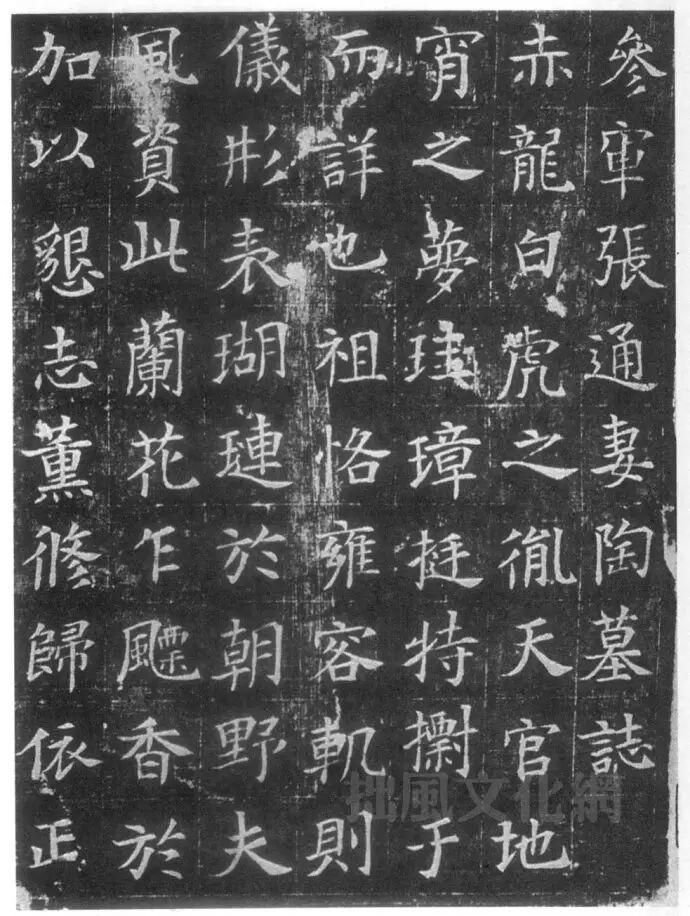 參軍張通妻陶墓誌
赤龍白虎之胤天官地
宵之夢瑋璋挺特𦌵于
而詳也祖恪雍容軌則
儀形表瑚璉於朝野夫
風資此蘭花乍飄香於
加以懇志薰修歸依正
拙風文化網